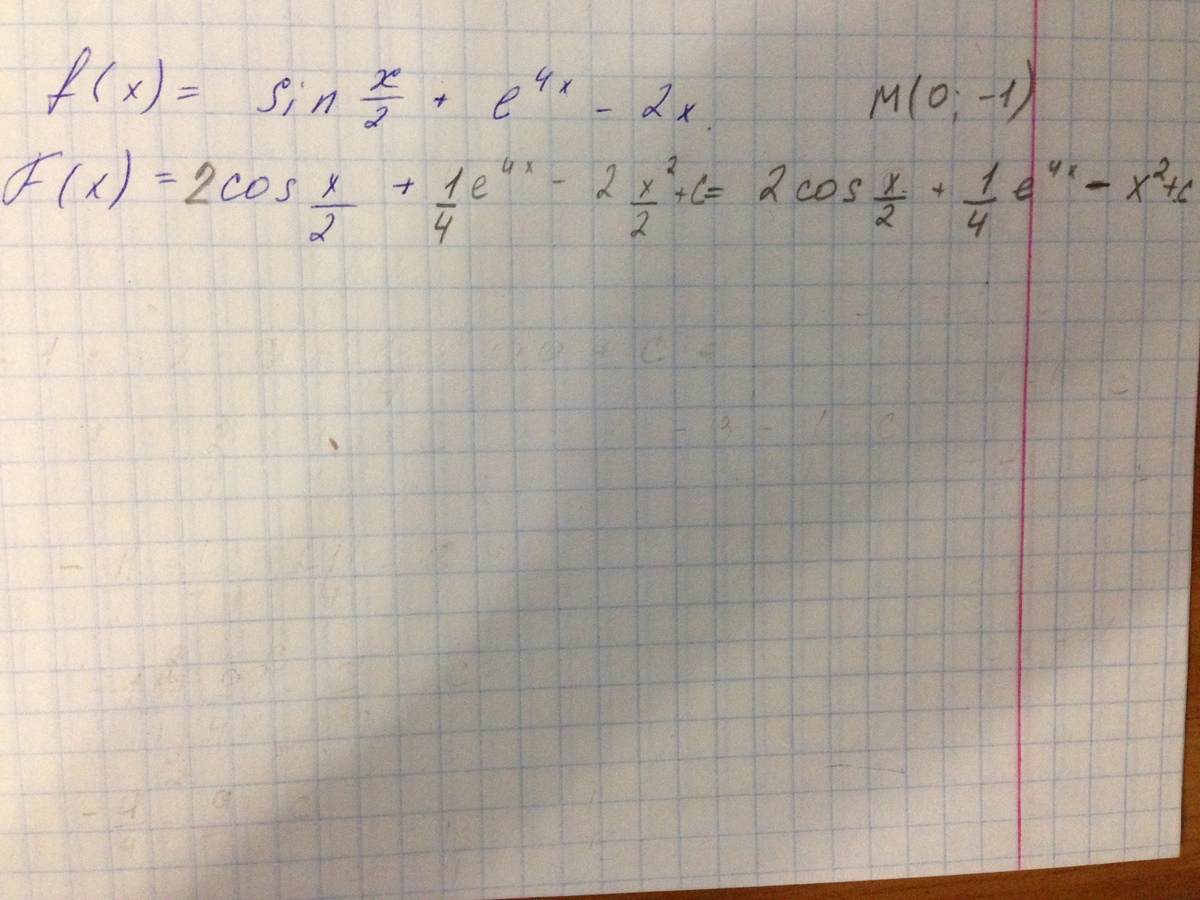 f(x) = sin x/2 + e^4x - 2x. M(0; -1)
F(x) = 2cos x/2 + 1/4 e^4x - 2 x^2/2 + C = 2cos x/2 + 1/4 e^4x - x^2 + C